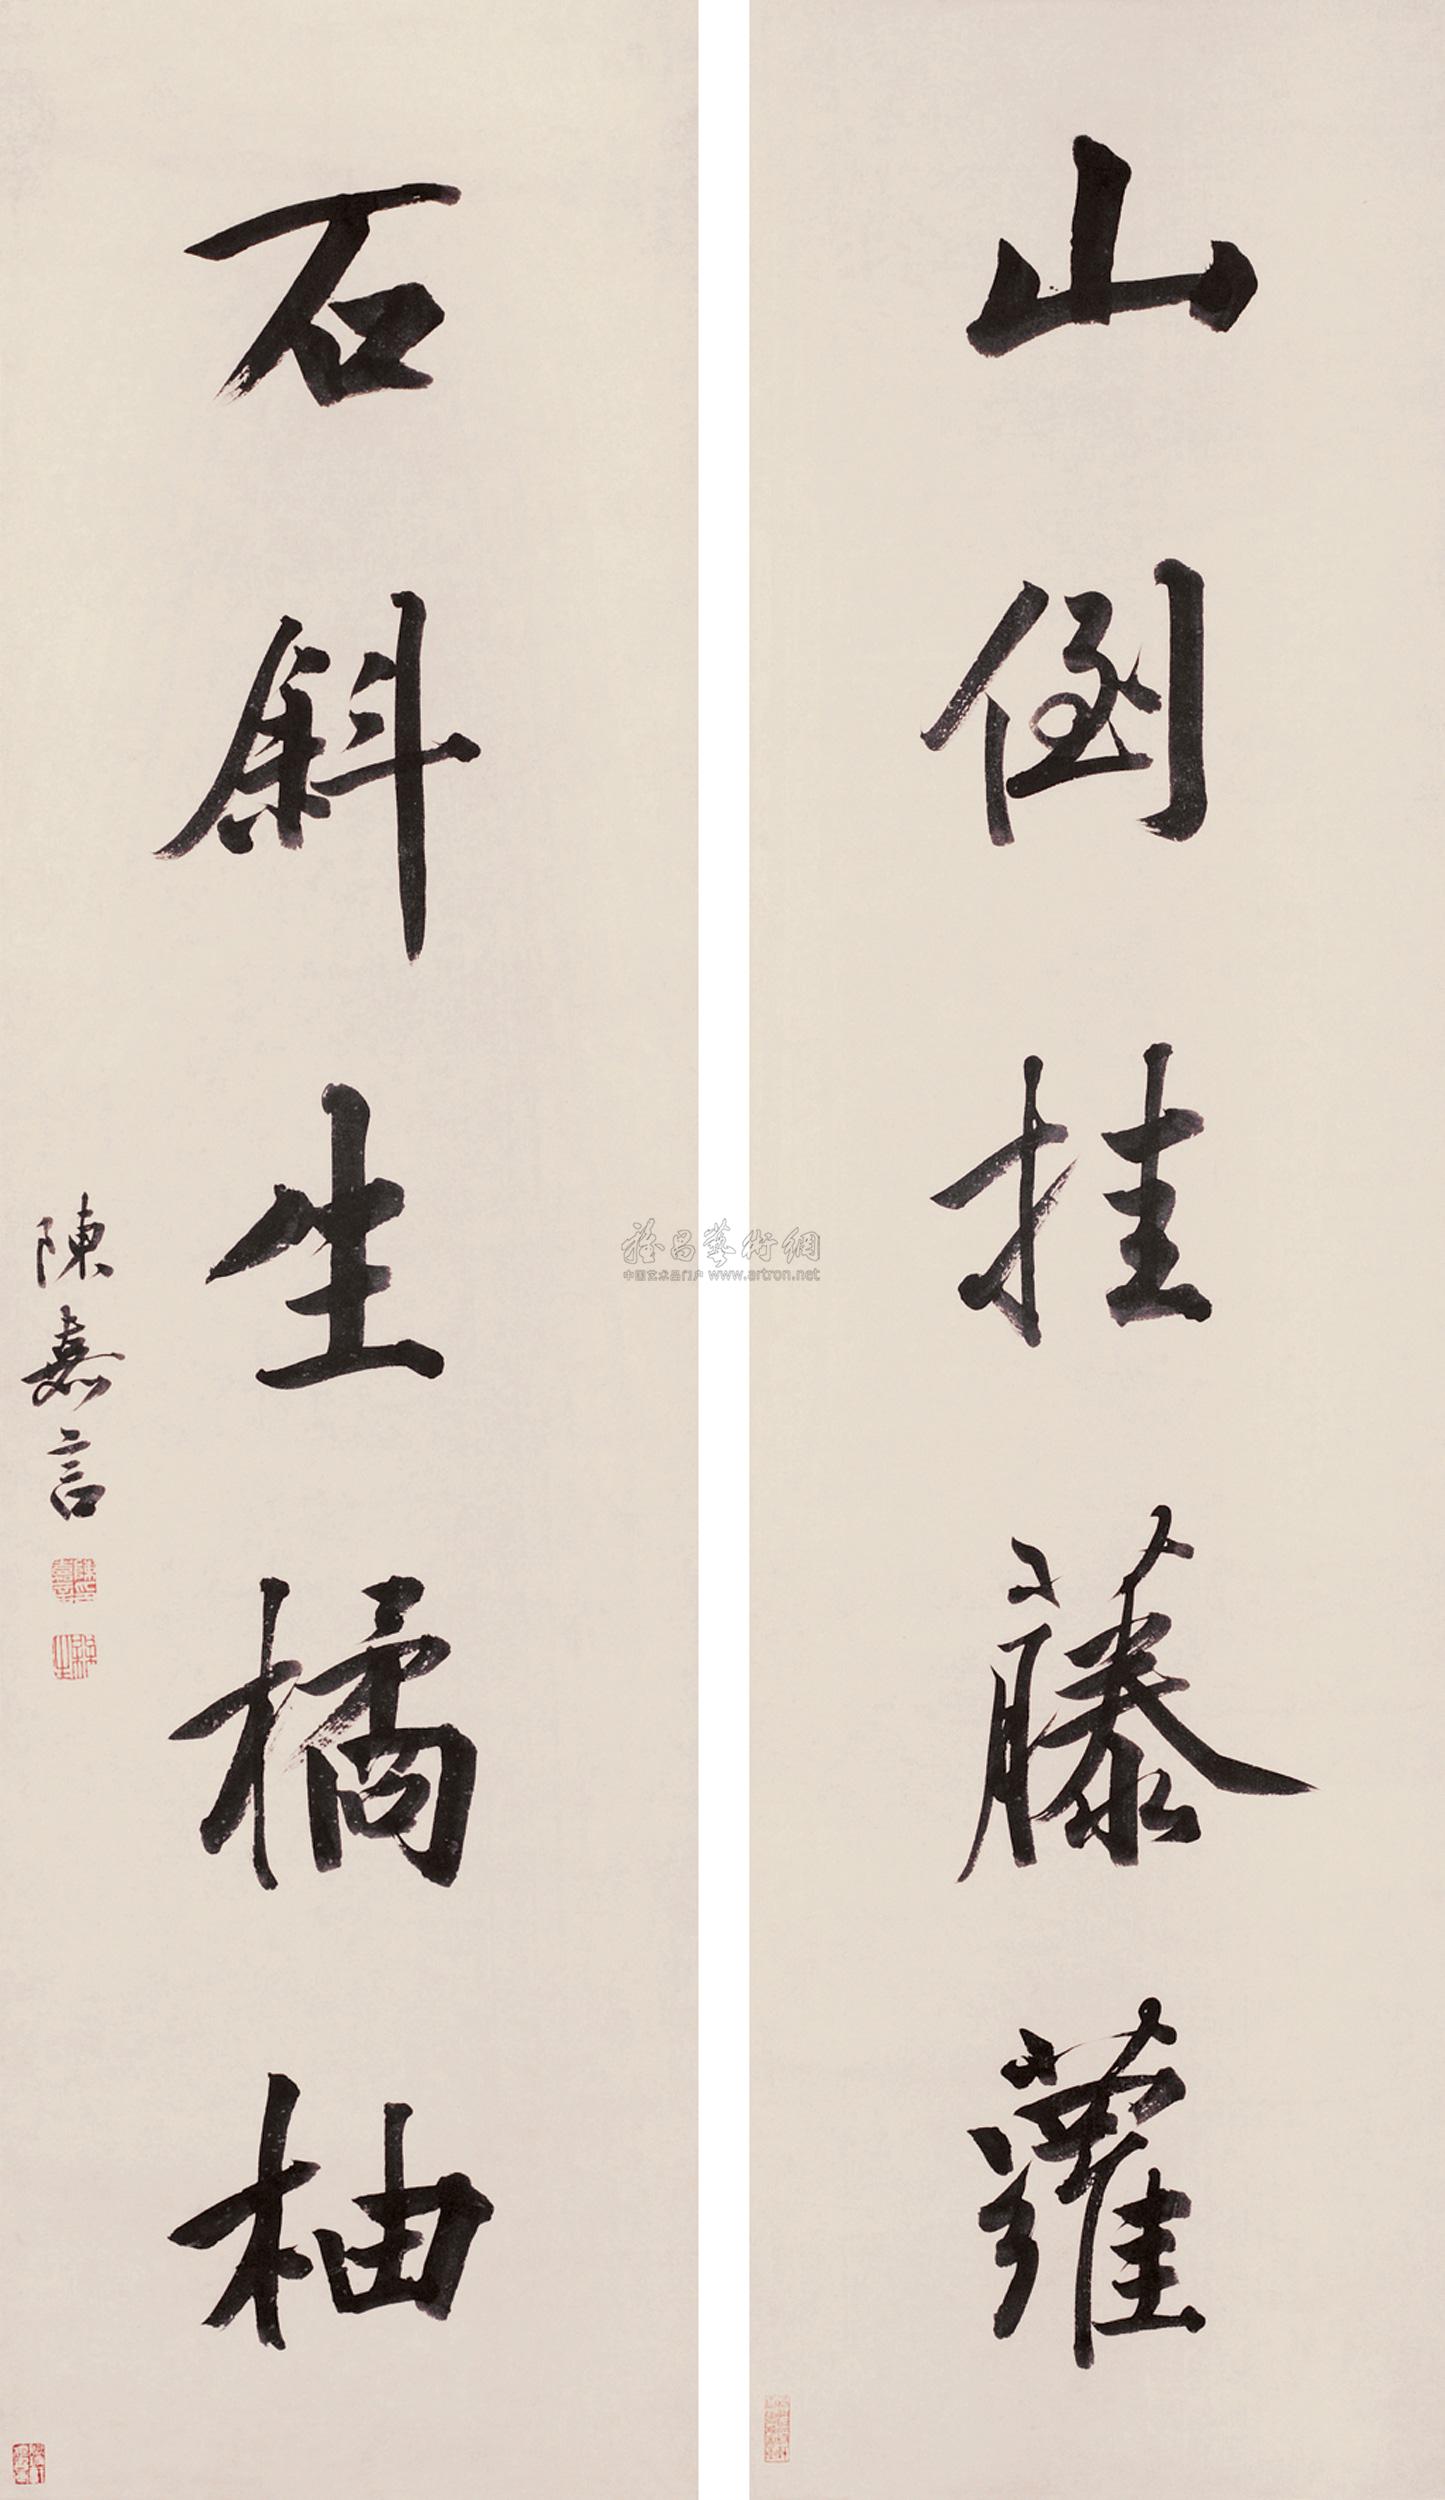 山倒挂藤蘿
石斜生橘柚
陳嘉言
雅昌藝術網
中国艺术品门户 www.artron.net